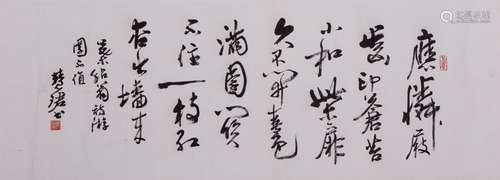 應憐屐
齒印蒼苔
小扣柴扉
久不開春色
滿園關
不住一枝紅
杏出墻來
葉紹翁詩游
園不值
慧珺書